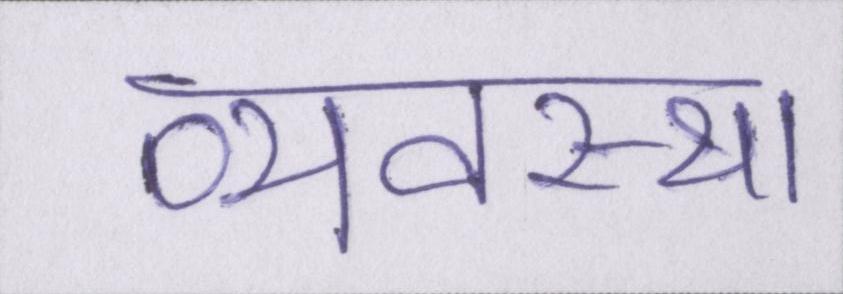 व्यवस्था